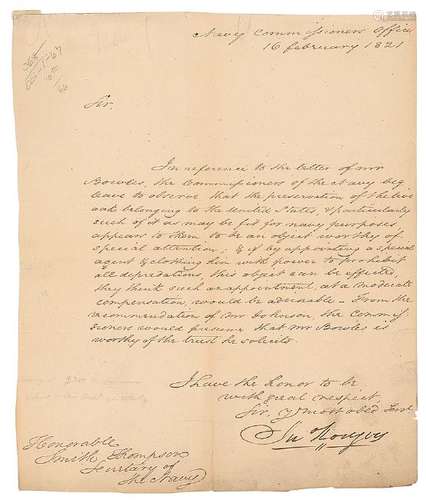 Navy Commissioners Office
16 February 1821
Sir.
In reference to the letter of Mr
Bowles, the Commissioners of the Navy beg
leave to observe that the preservation of the live
oak belonging to the United States, & particularly
such of it as may be fit for navy purposes
appears to them to be an object worthy of
special attention, & if by appointing a special
agent & clothing him with power to prohibit
all depredations, this object can be effected,
they think such an appointment, at a moderate
compensation, would be adviseable - From the
recommendation of Mr Johnson, the Commis
sioners would presume that Mr Bowles is
worthy of the trust he solicits.
I have the honor to be
with great respect,
Sir, Yr most obed Servt
Jno Rodgers
Honorable
Smith Thompson
Secretary of
the Navy